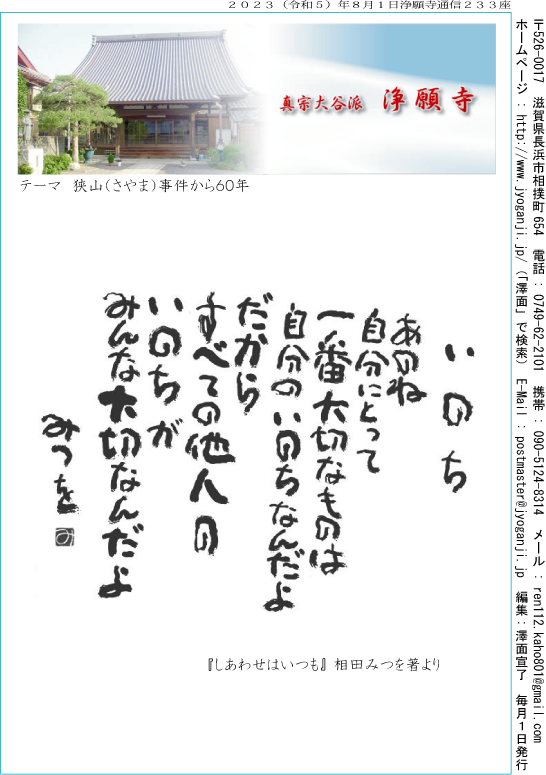 ２０２３（令和５）年８月１日浄願寺通信２３３座
真宗大谷派　浄願寺
テーマ　狭山（さやま）事件から60年
いのち
あのね
自分にとって
一番大切なものは
自分のいのちなんだよ
だから
すべての他人の
いのちが
みんな大切なんだよ
みつを
み
『しあわせはいつも』相田みつを著より
〒526-0017　滋賀県長浜市相撲町654　電話：0749-62-2101　携帯：090-5124-8314　メール：ren112.kaho801@gmail.com
ホームページ：http://www.jyoganji.jp/（「澤面」で検索）　E-Mail：postmaster@jyoganji.jp　編集：澤面宣了　毎月１日発行